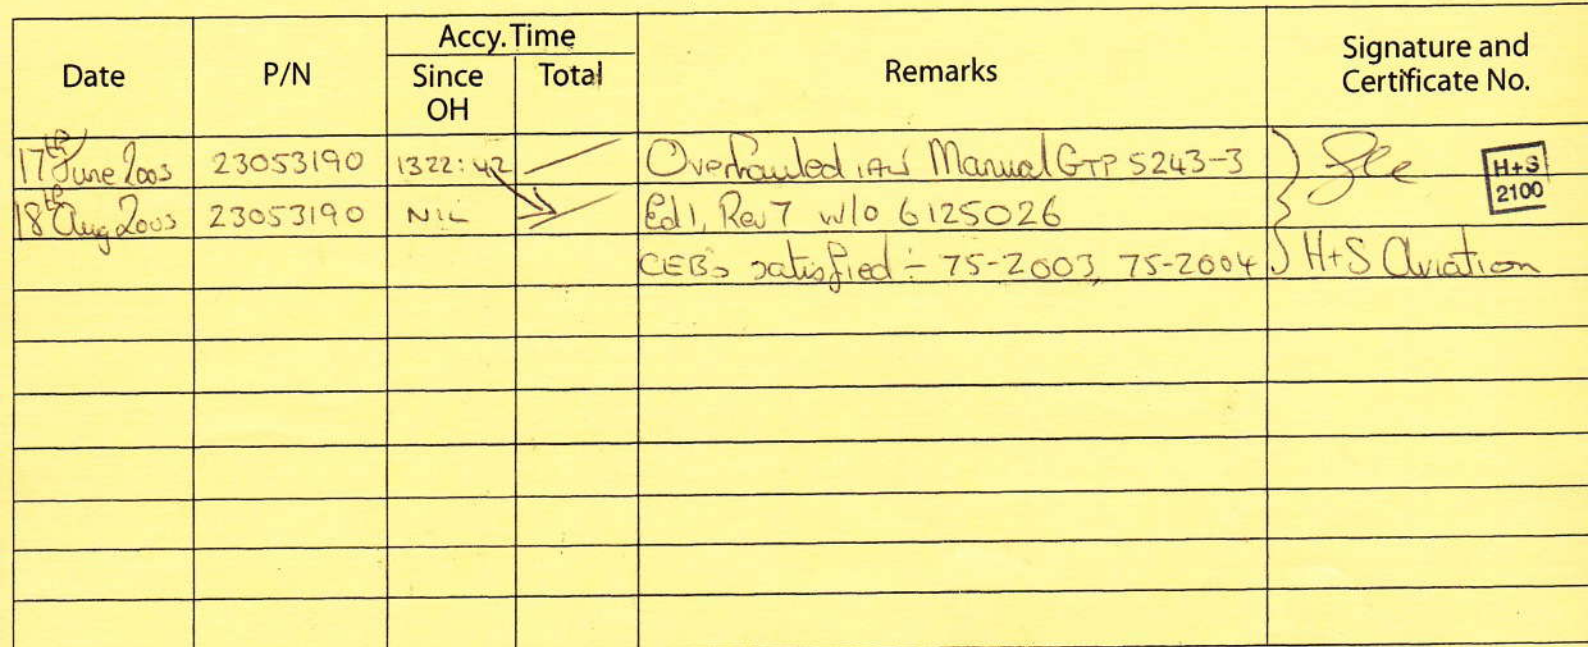 Date P/N Accy. Time Since OH Total Remarks Signature and Certificate No.
17th June 2003 23053190 1322:42 Overhauled IAW Manual GTP 5243-3
H+S
2100
18th Aug 2003 23053190 NIL Ed 1, Rev 7 w/o 6125026
CEBs satisfied :- 75-2003, 75-2004 H+S Aviation